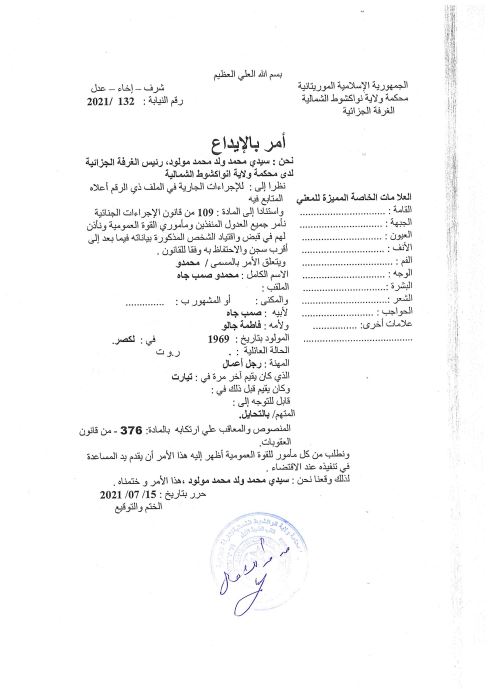 بسم الله العلي العظيم
الجمهورية الإسلامية الموريتانية
شرف – إخاء – عدل
محكمة ولاية نواكشوط الشمالية
رقم النيابة : 132 /2021
الغرفة الجزائية
أمر بالإيداع
نحن : سيدي محمد ولد محمد مولود، رئيس الغرفة الجزائية
لدى محكمة ولاية انواكشوط الشمالية
نظرا إلى : للإجراءات الجارية في الملف ذي الرقم أعلاه
المتابع فيه
واستنادا إلى المادة : 109 من قانون الإجراءات الجنائية
نأمر جميع العدول المنفذين ومأموري القوة العمومية ونأذن
لهم في قبض واقتياد الشخص المذكورة بياناته فيما بعد إلى
أقرب سجن والاحتفاظ به وفقا للقانون .
ويتعلق الأمر بالمسمى / محمدو
الاسم الكامل : محمدو صمب جاه
الملقب :
والمكنى : أو المشهور ب : .............
لأبيه : صمب جاه
ولأمه : فاطمة جالو
المولود بتاريخ : 1969 في : لكصر.
الحالة العائلية : . ر.و ت
المهنة : رجل أعمال
الذي كان يقيم آخر مرة في : تيارت
وكان يقيم قبل ذلك في :
قابل للتوجه إلى :
المتهم/ بالتحايل.
العلامات الخاصة المميزة للمعني
القامة : ......................
الجبهة : ......................
العيون : ......................
الأنف : ......................
الفم : ......................
الوجه : ......................
البشرة : ......................
الشعر : ......................
الحواجب : ..................
علامات أخرى: ................
..............................
المنصوص والمعاقب علي ارتكابه بالمادة: 376 - من قانون
العقوبات.
ونطلب من كل مأمور للقوة العمومية أظهر إليه هذا الأمر أن يقدم يد المساعدة
في تنفيذه عند الاقتضاء .
لذلك وقعنا نحن : سيدي محمد ولد محمد مولود ،هذا الأمر و ختمناه .
حرر بتاريخ : 15/ 07/ 2021
الختم والتوقيع